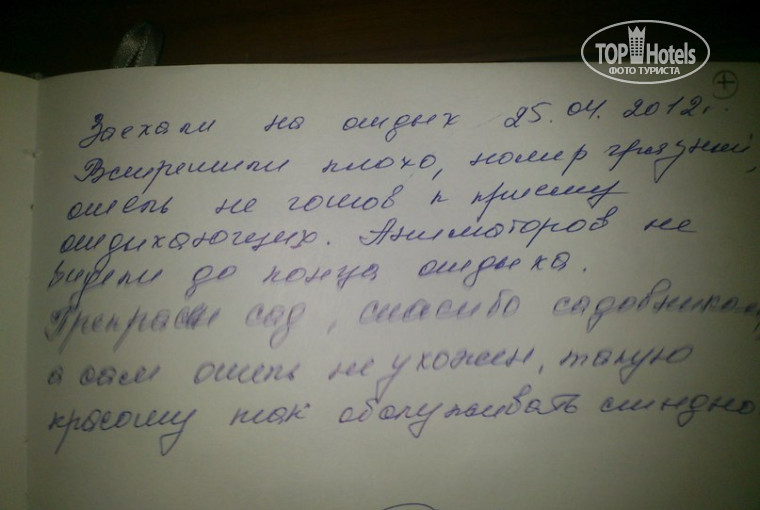 TOP Hotels
ФОТО ТУРИСТА
Заехали на отдых 25.04.2012г.
Встретили плохо, номер грязный,
отель не готов к приему
отдыхающих. Аниматоров не
видели до конца отдыха.
Прекрасен сад, спасибо садовникам,
а сам отель не ухожен, такую
красоту так обслуживать стыдно